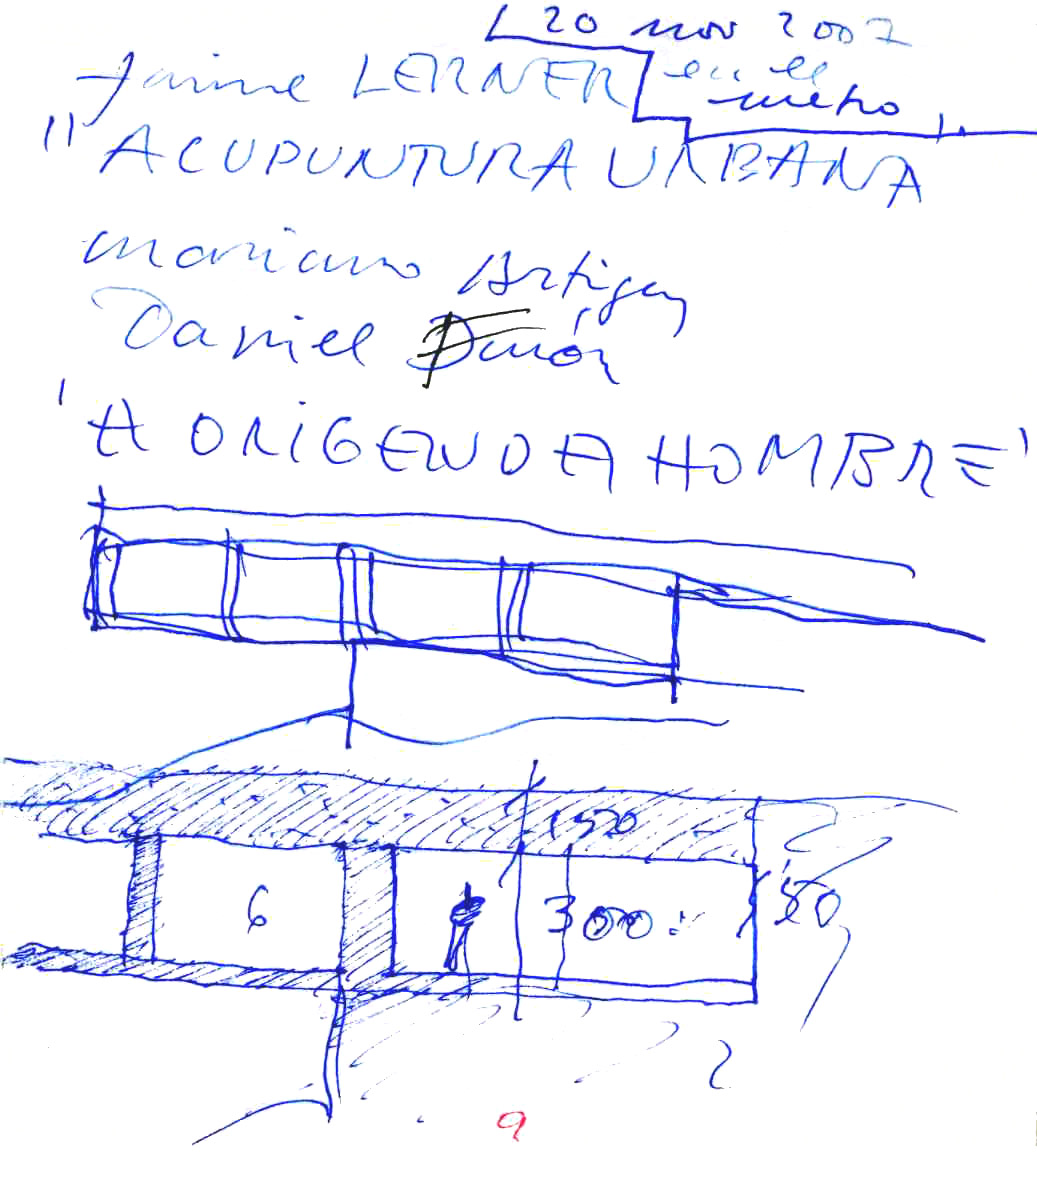 20 nov 2007
Jaime LERNER en el
metro
"ACUPUNTURA URBANA"
Mariano Artigas
Daniel
'A ORIGEN DA HOMBRE'
150
6
300
150
2
9